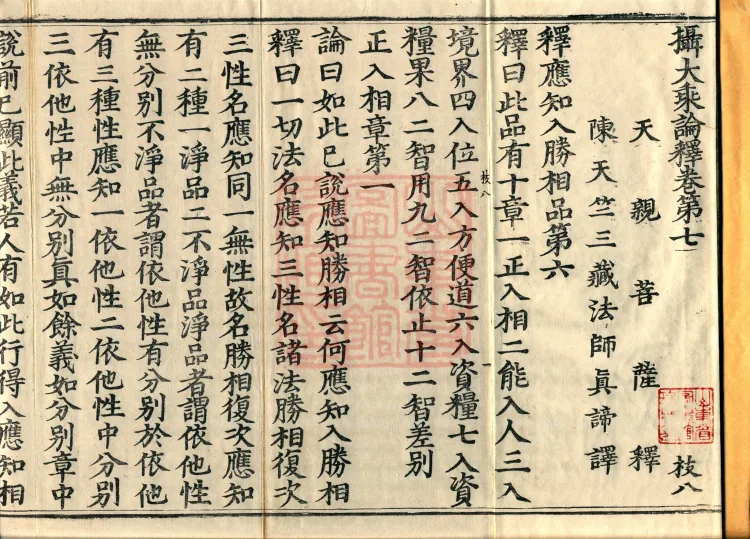 攝大乘論釋卷第七
枝八
天親菩薩釋
陳天竺三藏法師眞諦譯
釋應知入勝相品第六
釋曰此品有十章一正入相二能入人三入
境界四入位五入方便道六入資糧七入資
糧果八二智用九二智依止十二智差別
枝八
一
正入相章第一
論曰如此已說應知勝相云何應知入勝相
釋曰一切法名應知三性名諸法勝相復次
三性名應知同一無性故名勝相復次應知
有二種一淨品二不淨品淨品者謂依他性
無分別不淨品者謂依他性有分別於依他
有三種性應知一依他性二依他性中分別
三依他性中無分別眞如餘義如分別章中
說前已顯此義若人有如此行得入應知相